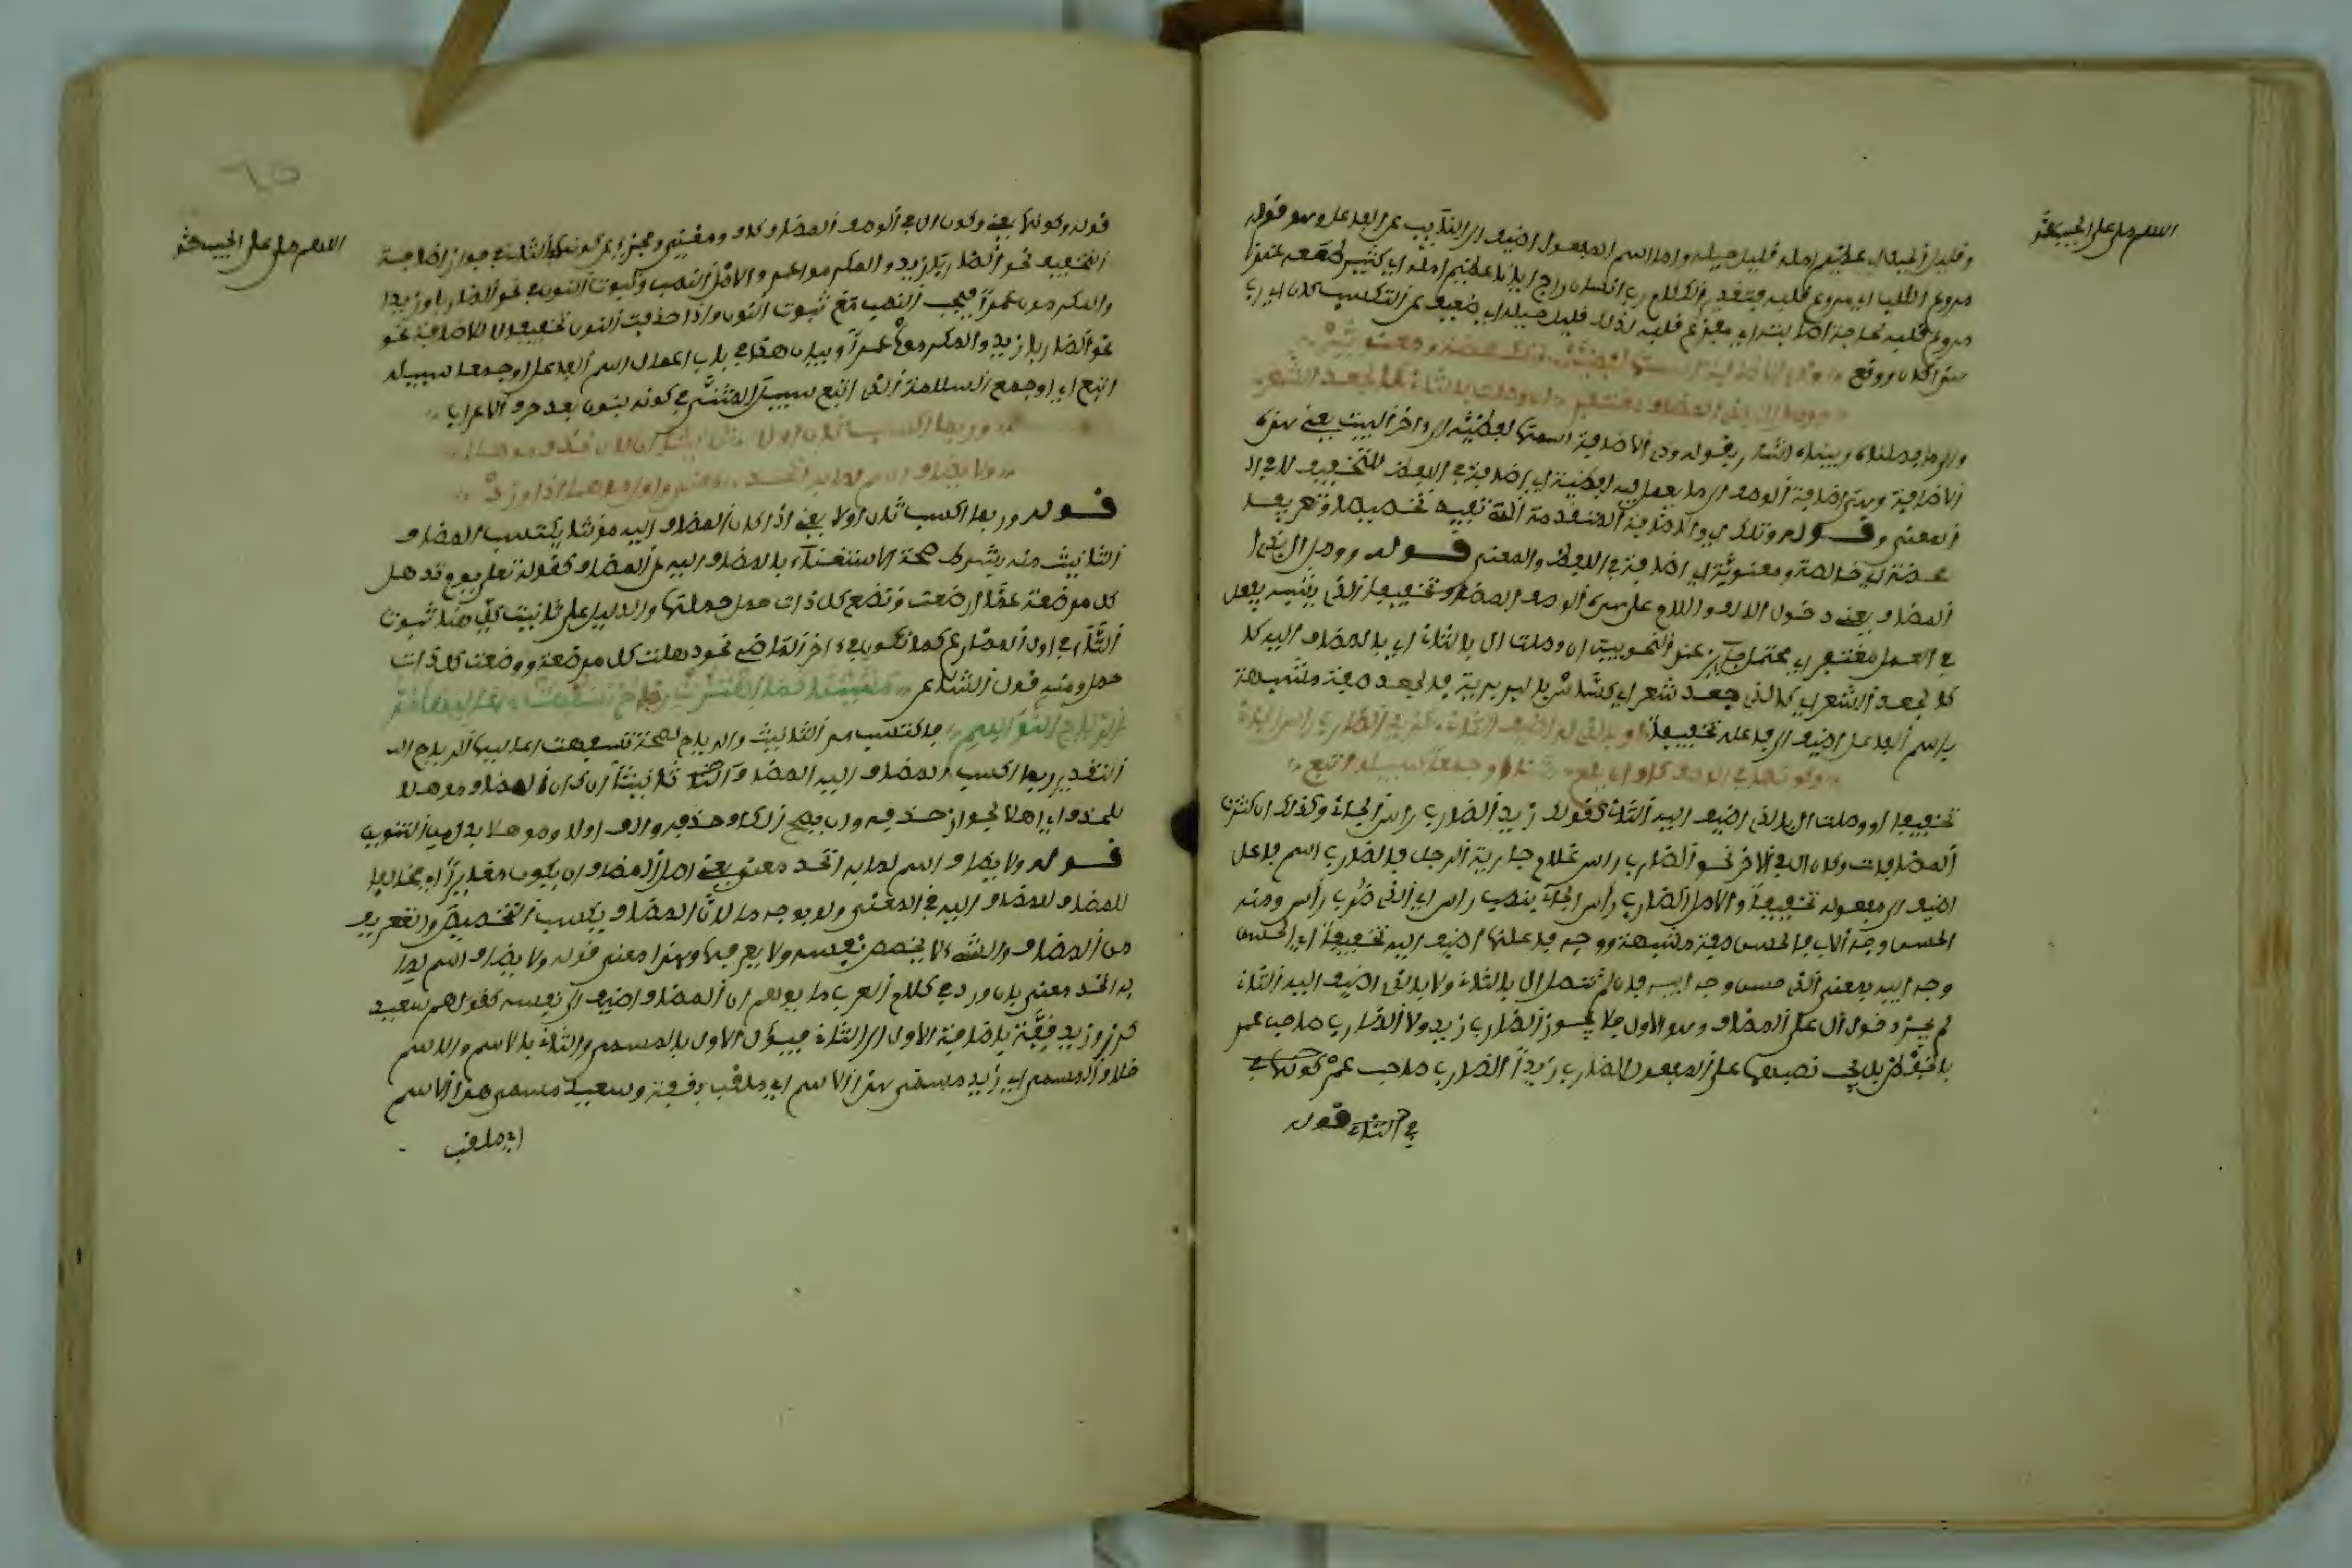 اللهم صل على الحبيب محمد
وقليل الحيل اي عظيم امله قليل حيله واما اسم المفعول اضيف الى النائب عن الفاعل وهو قوله
مروع القلب اي مروع قلبه فتقدير الكلام رب انسان راج ايانا عظيم امله اي كثير
مروع قلبه اي مفزع قلبه لذلك قليل حيله اي ضعيف عن التكسب
وذي الاضافة اسمها لفظيه وتلك محضة ومعنويه
ووصل ال بذا المضاف مغتفر ان وصلت بالثان كالجعد الشعر
والى ما فصلناه وبيناه اشار بقوله وذي الاضافة اسمها لفظيه الى ءاخر البيت يعني هذه
الاضافة وهي اضافة الوصف الى ما يعمل فيه لفظية اي اضافة في اللفظ للتخفيف لا في
المعنى وقوله وتلك اي والاضافة المتقدمة التي تفيد تخصيصا وتعريفا
محضة اي خالصة ومعنوية اي اضافة في اللفظ والمعنى قوله ووصل ال بذا
المضاف يعني دخول الالف واللام على هذا الوصف المضاف تخفيفا الذي يشبه يفعل
في العمل مغتفر اي محتمل جائز عند النحويين ان وصلت ال بالثان اي بالمضاف اليه
كالجعد الشعر اي كالذي جعد شعر فالجعد صفة مشبهة
باسم الفاعل اضيف الى فاعله تخفيفا او بالذي له اضيف الثان كزيد الضارب راس الجان
وكونها في الوصف كاف ان وقع مثنى او جمعا سبيله اتبع
تخفيفا او وصلت ال بالذي اضيف اليه الثان كقولك زيد الضارب راس الجان وكذلك ان كثرت
المضافات وكان ال في الاخر نحو الضارب راس غلام جارية الرجل فالضارب اسم فاعل
اضيف الى مفعوله تخفيفا والاصل الضارب راس الجان بنصب راس اي الذي ضرب راس ومنه
الحسن وجه الاب فالحسن صفة مشبهة ووجه فاعلها اضيف اليه تخفيفا اي الحسن
وجه ابيه بمعنى الذي حسن وجه ابيه فان لم تتصل ال بالثان ولا بالذي اضيف اليه الثان
لم يجز دخول ال على المضاف وهو الاول فلا يجوز الضارب زيد ولا الضارب صاحب عمر
بالخفض بل يجب نصبهما على المفعول الضارب زيدا الضارب صاحب عمر كونها في
في الثان قوله
٦٥
اللهم صل على الحبيب محمد
قوله وكونها يعني وكون ال في الوصف المضاف كاف ومغتن ومجز اي عن كونها في الثان في جواز اضافة
التخفيف نحو الضاربا زيد والمكرموا عمر والاصل النصب وثبوت النون في نحو الضاربان زيدا
والمكرمون عمرا فيجب النصب مع ثبوت النون واذا حذفت النون تخفيفا لا للاضافة نحو
نحو الضاربا زيدا والمكرموا عمرا وبيان هذا في باب اعمال اسم الفاعل او جمعا سبيله
اتبع اي او جمع السلامة الذي اتبع سبيل المثنى في كونه بنون بعد حرف الاعراب
وربما اكسب ثان اولا تانيثا ان كان لحذف موهلا
ولا يضاف اسم لما به اتحد معنى واول موهما اذا ورد
قوله وربما اكسب ثان اولا يعني اذا كان المضاف اليه مؤنثا يكتسب المضاف
التانيث منه بشرط صحة الاستغناء بالمضاف اليه عن المضاف كقوله تعلى يوم تذهل
كل مرضعة عما ارضعت وتضع كل ذات حمل حملها والدليل على تانيث كل هنا ثبوت
التاء في اول المضارع كما تكون في ءاخر الماضي نحو ذهلت كل مرضعة ووضعت كل ذات
حمل ومنه قول الشاعر مشين كما اهتزت رماح تسفهت اعاليها مر
الرياح النواسم فاكتسب مر التانيث من الرياح لصحة تسفهت اعاليها الرياح
التقدير ربما اكسب المضاف اليه المضاف تانيثا ان كان المضاف موهلا
للحذف اي اهلا لجواز حذفه والف اولا وموهلا بدل من التنوين
قوله ولا يضاف اسم لما به اتحد معنى يعني اصل المضاف ان يكون مغايرا اي مخالفا
للمضاف اليه في المعنى ولو بوجه ما لان المضاف يكتسب التخصيص والتعريف
من المضاف والشيء لا يخصص نفسه ولا يعرفها وهذا معنى قوله ولا يضاف اسم لما
به اتحد معنى فان ورد في كلام العرب ما يوهم ان المضاف اضيف الى نفسه كقولهم سعيد
كرز وزيد قفة باضافة الاول الى الثان فيؤل الاول بالمسمى والثان بالاسم
اي زيد مسمى هذا الاسم اي ملقب بقفة وسعيد مسمى هذا الاسم
اي ملقب